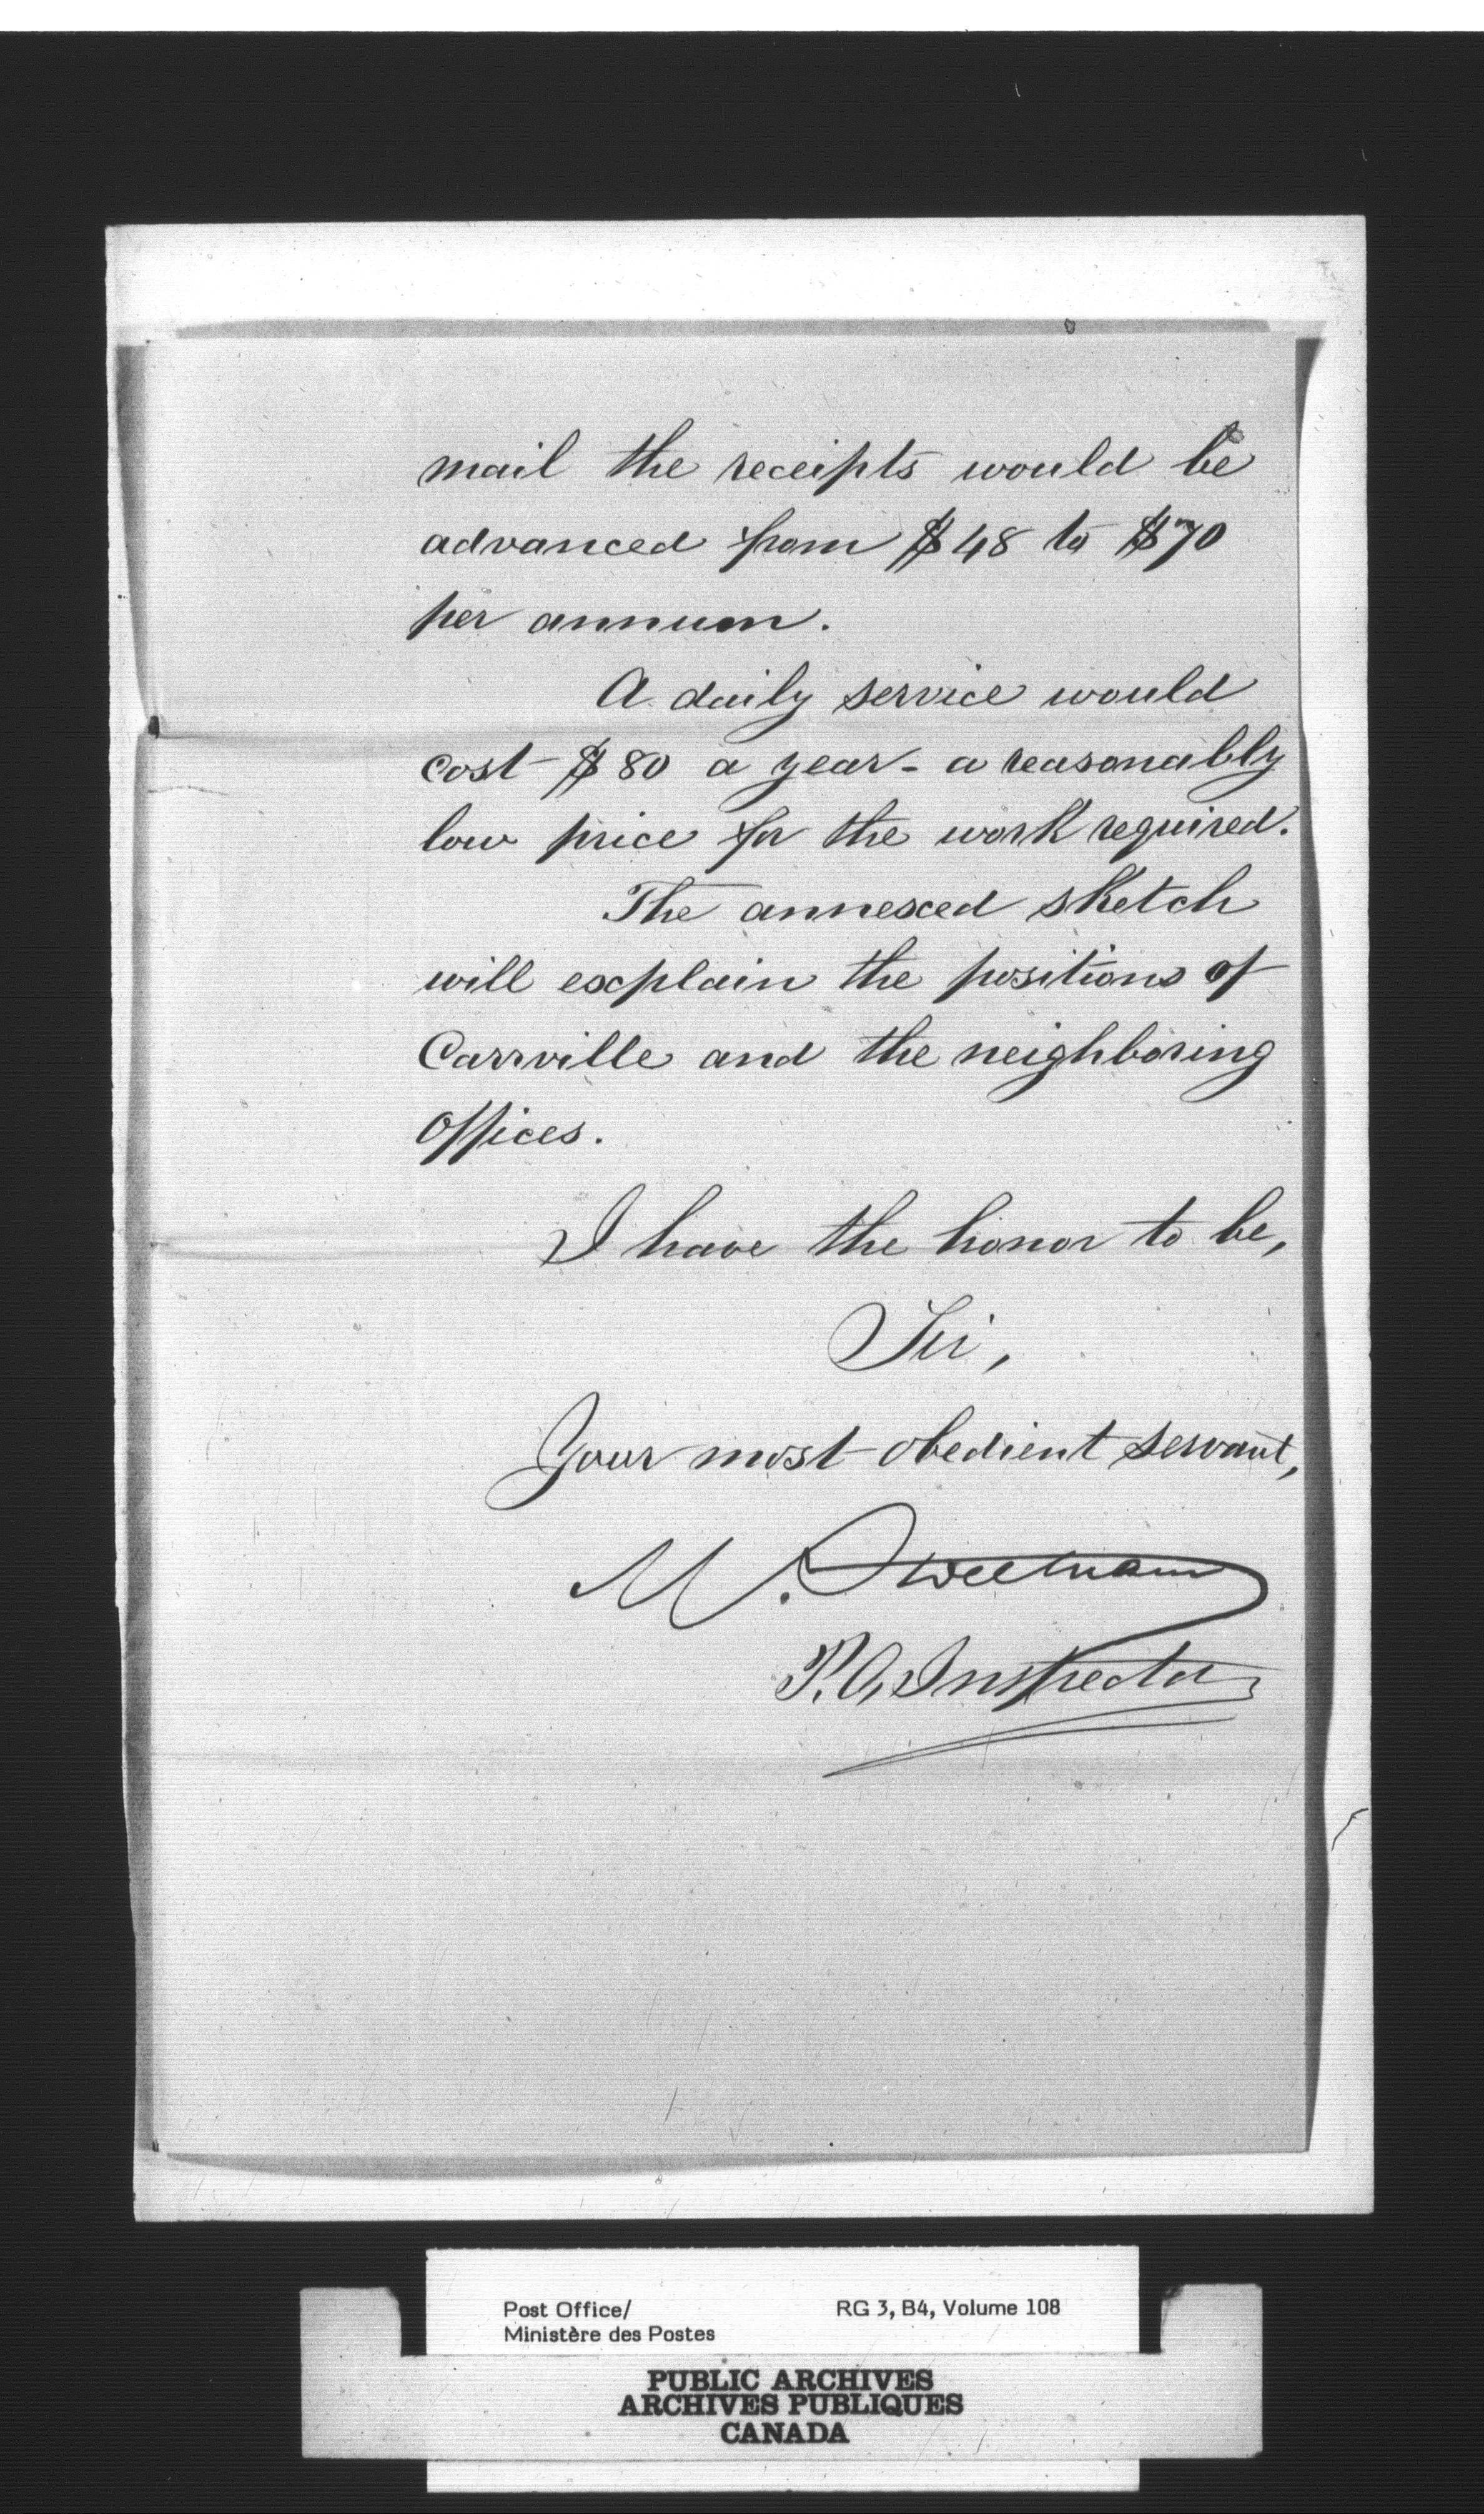 mail the receipts would be
advanced from $48 to $70
per annum.
A daily service would
cost $80 a year - a reasonably
low price for the work required.
The annexed sketch
will explain the positions of
Carrville and the neighboring
Offices.
I have the honor to be,
Sir,
Your most obedient servant,
M. Sweetnam
P.O. Inspector
Post Office/
Ministère des Postes
RG 3, B4, Volume 108
PUBLIC ARCHIVES
ARCHIVES PUBLIQUES
CANADA